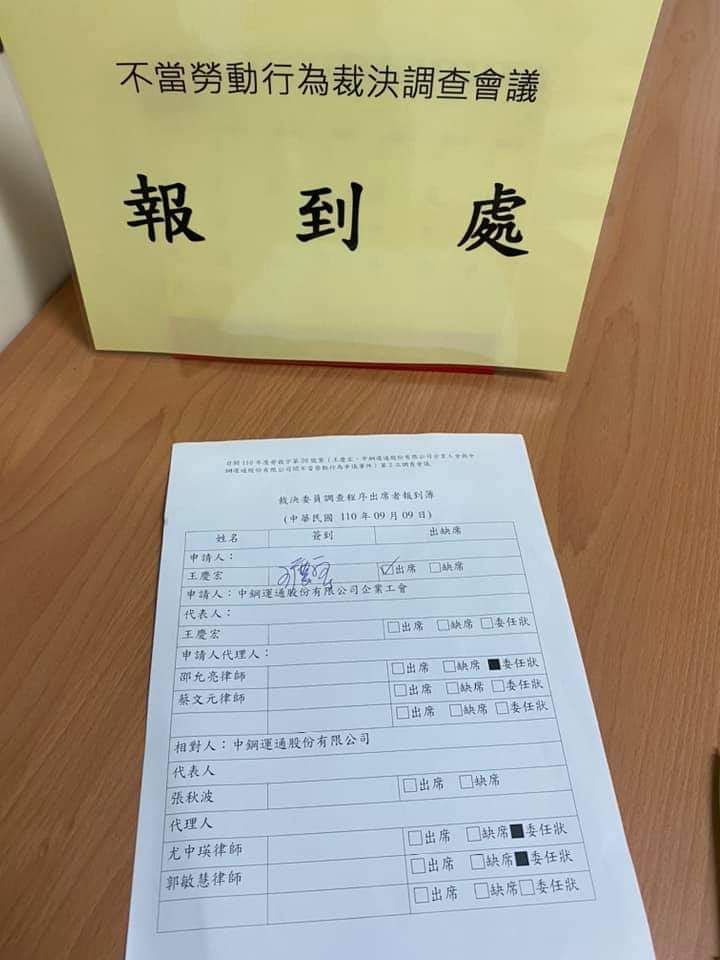 不當勞動行為裁決調查會議
報 到 處
勞裁字第 號案(王慶宏、中鋼運通股份有限公司企業工會與中
鋼運通股份有限公司間不當勞動行為爭議事件)第2次調查會議
裁決委員調查程序出席者報到簿
(中華民國 110 年 09 月 09 日)
姓名 簽到 出缺席
申請人:
王慶宏 ☑出席 □缺席
申請人:中鋼運通股份有限公司企業工會
代表人:
王慶宏 □出席 □缺席 □委任狀
申請人代理人:
邵允亮律師 □出席 □缺席 ■委任狀
蔡文元律師 □出席 □缺席 □委任狀
□出席 □缺席 □委任狀
相對人:中鋼運通股份有限公司
代表人
張秋波 □出席 □缺席
代理人
尤中瑛律師 □出席 □缺席 ■委任狀
郭敏慧律師 □出席 □缺席 ■委任狀
□出席 □缺席 □委任狀